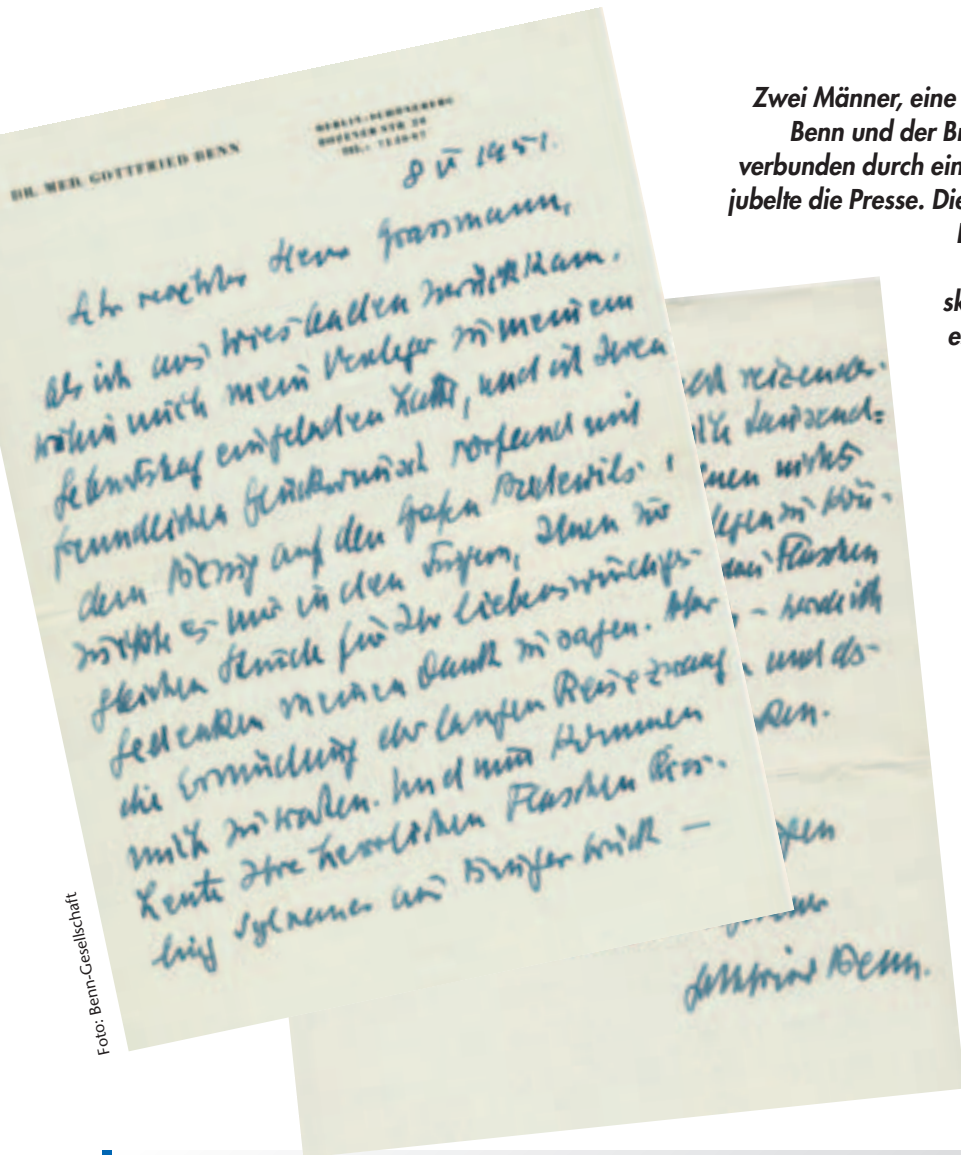 Zwei Männer, eine
Benn und der Br
verbunden durch ein
jubelte die Presse. Die
sk
e
DR. MED. GOTTFRIED BENN
BERLIN-SCHÖNEBERG
BOZENER STR. 20
TEL.:
8 V 1951.
Sehr verehrter Herr Grassmann,
als ich aus Wiesbaden zurückkam,
wohin mich mein Verleger zu meinem
Geburtstag eingeladen hatte, und ich Ihren
freundlichen Glückwunsch vorfand mit
dem Bezug auf den Grafen
zuckte es mir in den Fingern, Ihnen zur
gleichen Stunde für Ihr liebenswürdiges
Gedenken meinen Dank zu sagen. Aber
die Ermüdung der langen Reise zwang
mich zu warten. Und nun kommen
heute Ihre herrlichen Flaschen Ries-
ling Sylvaner aus Bingerbrück —
reizender
tausend=
nen nichts
legen zu kön-
Flaschen
– werde ich
und
ken.
Gottfried Benn.
Foto: Benn-Gesellschaft